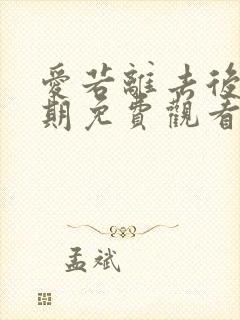 愛若離去後
期免費觀看
孟斌